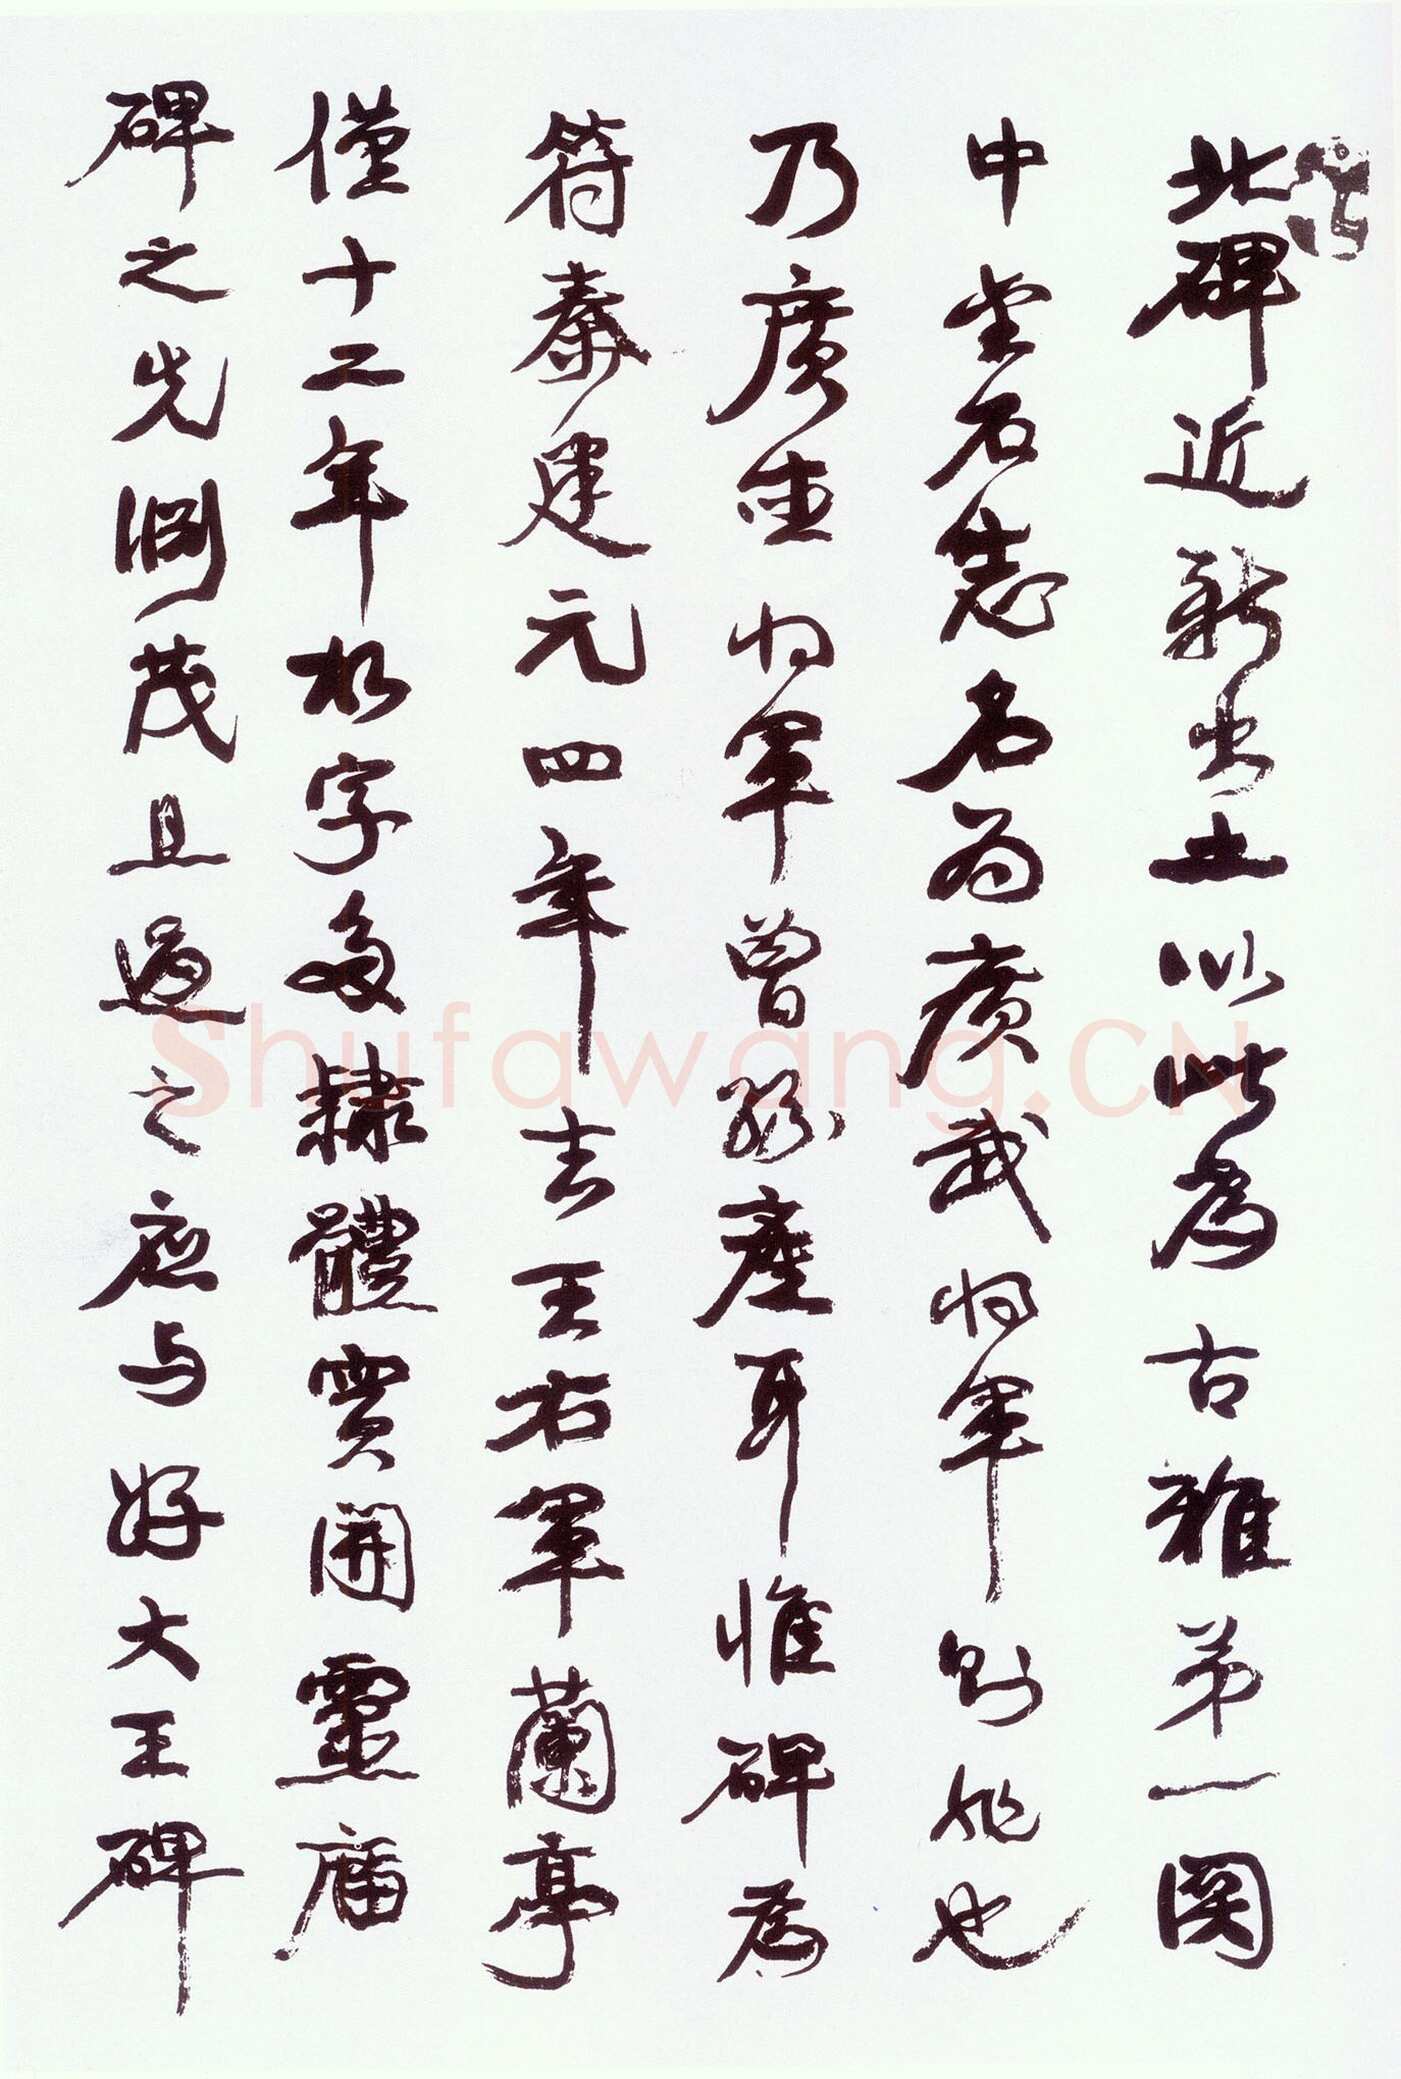 北碑近新出土以此為古雅第一関
中金石志名为廣武将军則非也
乃廣産将军曾孫產耳惟碑為
符秦建元四年去王右軍蘭亭
僅十二年故字多隸體實開靈廟
碑之先渊茂且過之应与好大王碑
Shufawang.CN